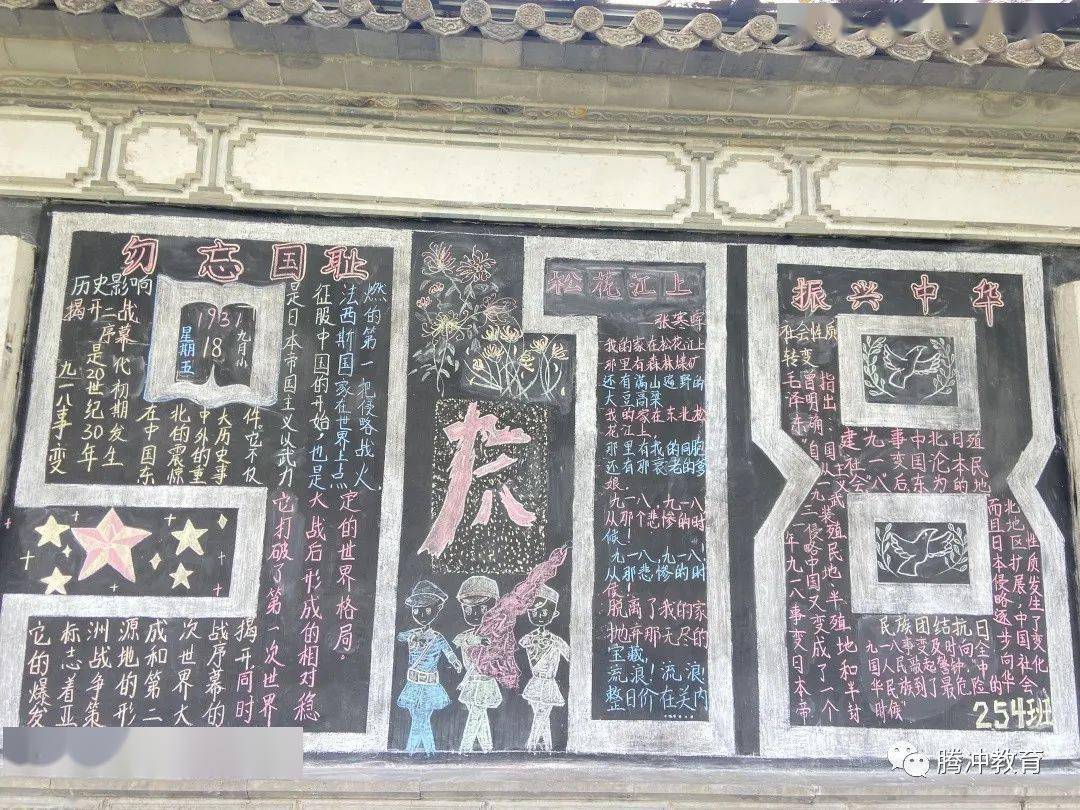 勿忘国耻
历史影响
揭开二战序幕
1931
九月小
18
星期五
九一八事变
是20世纪30年
代初期发生
在中国东
北的震惊
中外的重
大历史事
件。它不仅
是日本帝国主义以武力
征服中国的开始,也是
法西斯国家在世界上点
燃的第一把侵略战火
它的爆发
标志着亚
洲战争策
源地的形
成和第二
次世界大
战序幕的
揭开同时
它打破了第一次世界
大战后形成的相对稳
定的世界格局。
九一八
松花江上
张寒晖
我的家在松花江上
那里有森林煤矿
还有满山遍野的
大豆高粱
我的家在东北松
花江上
那里有我的同胞
还有那衰老的爹
娘.
九一八,九一八
从那个悲惨的时
候!
九一八,九一八!
从那悲惨的时
候!
脱离了我的家
抛弃那无尽的
宝藏!
流浪!流浪!
整日价在关内
振兴中华
社会性质
转变
毛泽东曾明确指出
建社会
九一八
事变后
中国东
北沦为
日本的
殖民地
而且日本侵略逐步向华
北地区扩展,中国社会
性质发生了变化
民族团结抗日
254班
腾冲教育